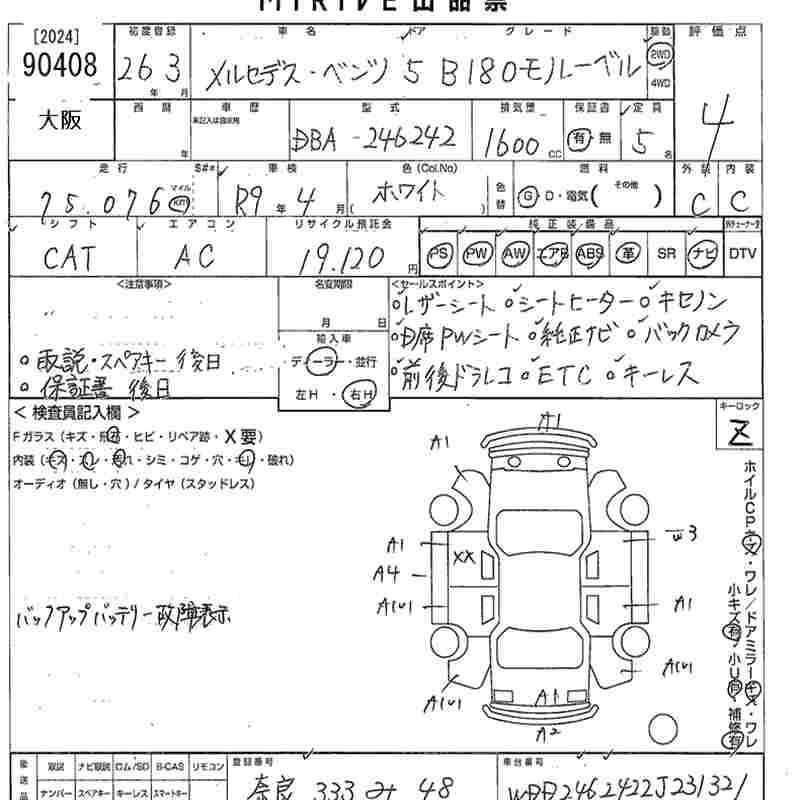 MIRIVE出品票
[2024] 初度登録 車名 ドア グレード 駆動 評価点
90408 26 3 メルセデス・ベンツ 5 B180モノルーベル 2WD 4
年 月 4WD
大阪 西暦 車歴 型式 排気量 保証書 定員
未記入は自家用
年 DBA-246242 1600 CC 有・無 5名
走行 S## 車検 色(Col.No) 燃料 外装 内装
75.076 マイル km R9年 4月 ホワイト ( ) 色替 G・D・電気( その他 ) C C
シフト エアコン リサイクル預託金 純正装備品
CAT AC 19.120円 PS PW AW エアB ABS 革 SR ナビ DTV
<注意事項> 名変期限 <セールスポイント>
月 日 ○レザーシート ○シートヒーター ○キセノン
輸入車 ○純正ナビ ○バックカメラ
○取説・スペアキー 後日 ディーラー・並行 ○前後ドラレコ ○ETC ○キーレス
○保証書 後日 左H・右H
<検査員記入欄> キーロック
Fガラス(キズ・飛石・ヒビ・リペア跡・X要)
内装(キズ・スレ・汚れ・シミ・コゲ・穴・キレ・破れ)
オーディオ(無し・穴)/タイヤ(スタッドレス)
バックアップバッテリー故障表示
A1
A1
A1 XX
A4
A1(U) A1
A1(U)
A1(U) A1
A2
ホイルCPキズ・ワレ/ドアミラーキズ・ワレ
小キズ有・小U有・補修有
後送品 取説 ナビ取説 ロム/SD B-CAS リモコン 登録番号 車台番号
ナンバー スペアキー キーレス スマートキー 奈良 333 み 48 WDD2462422J231321